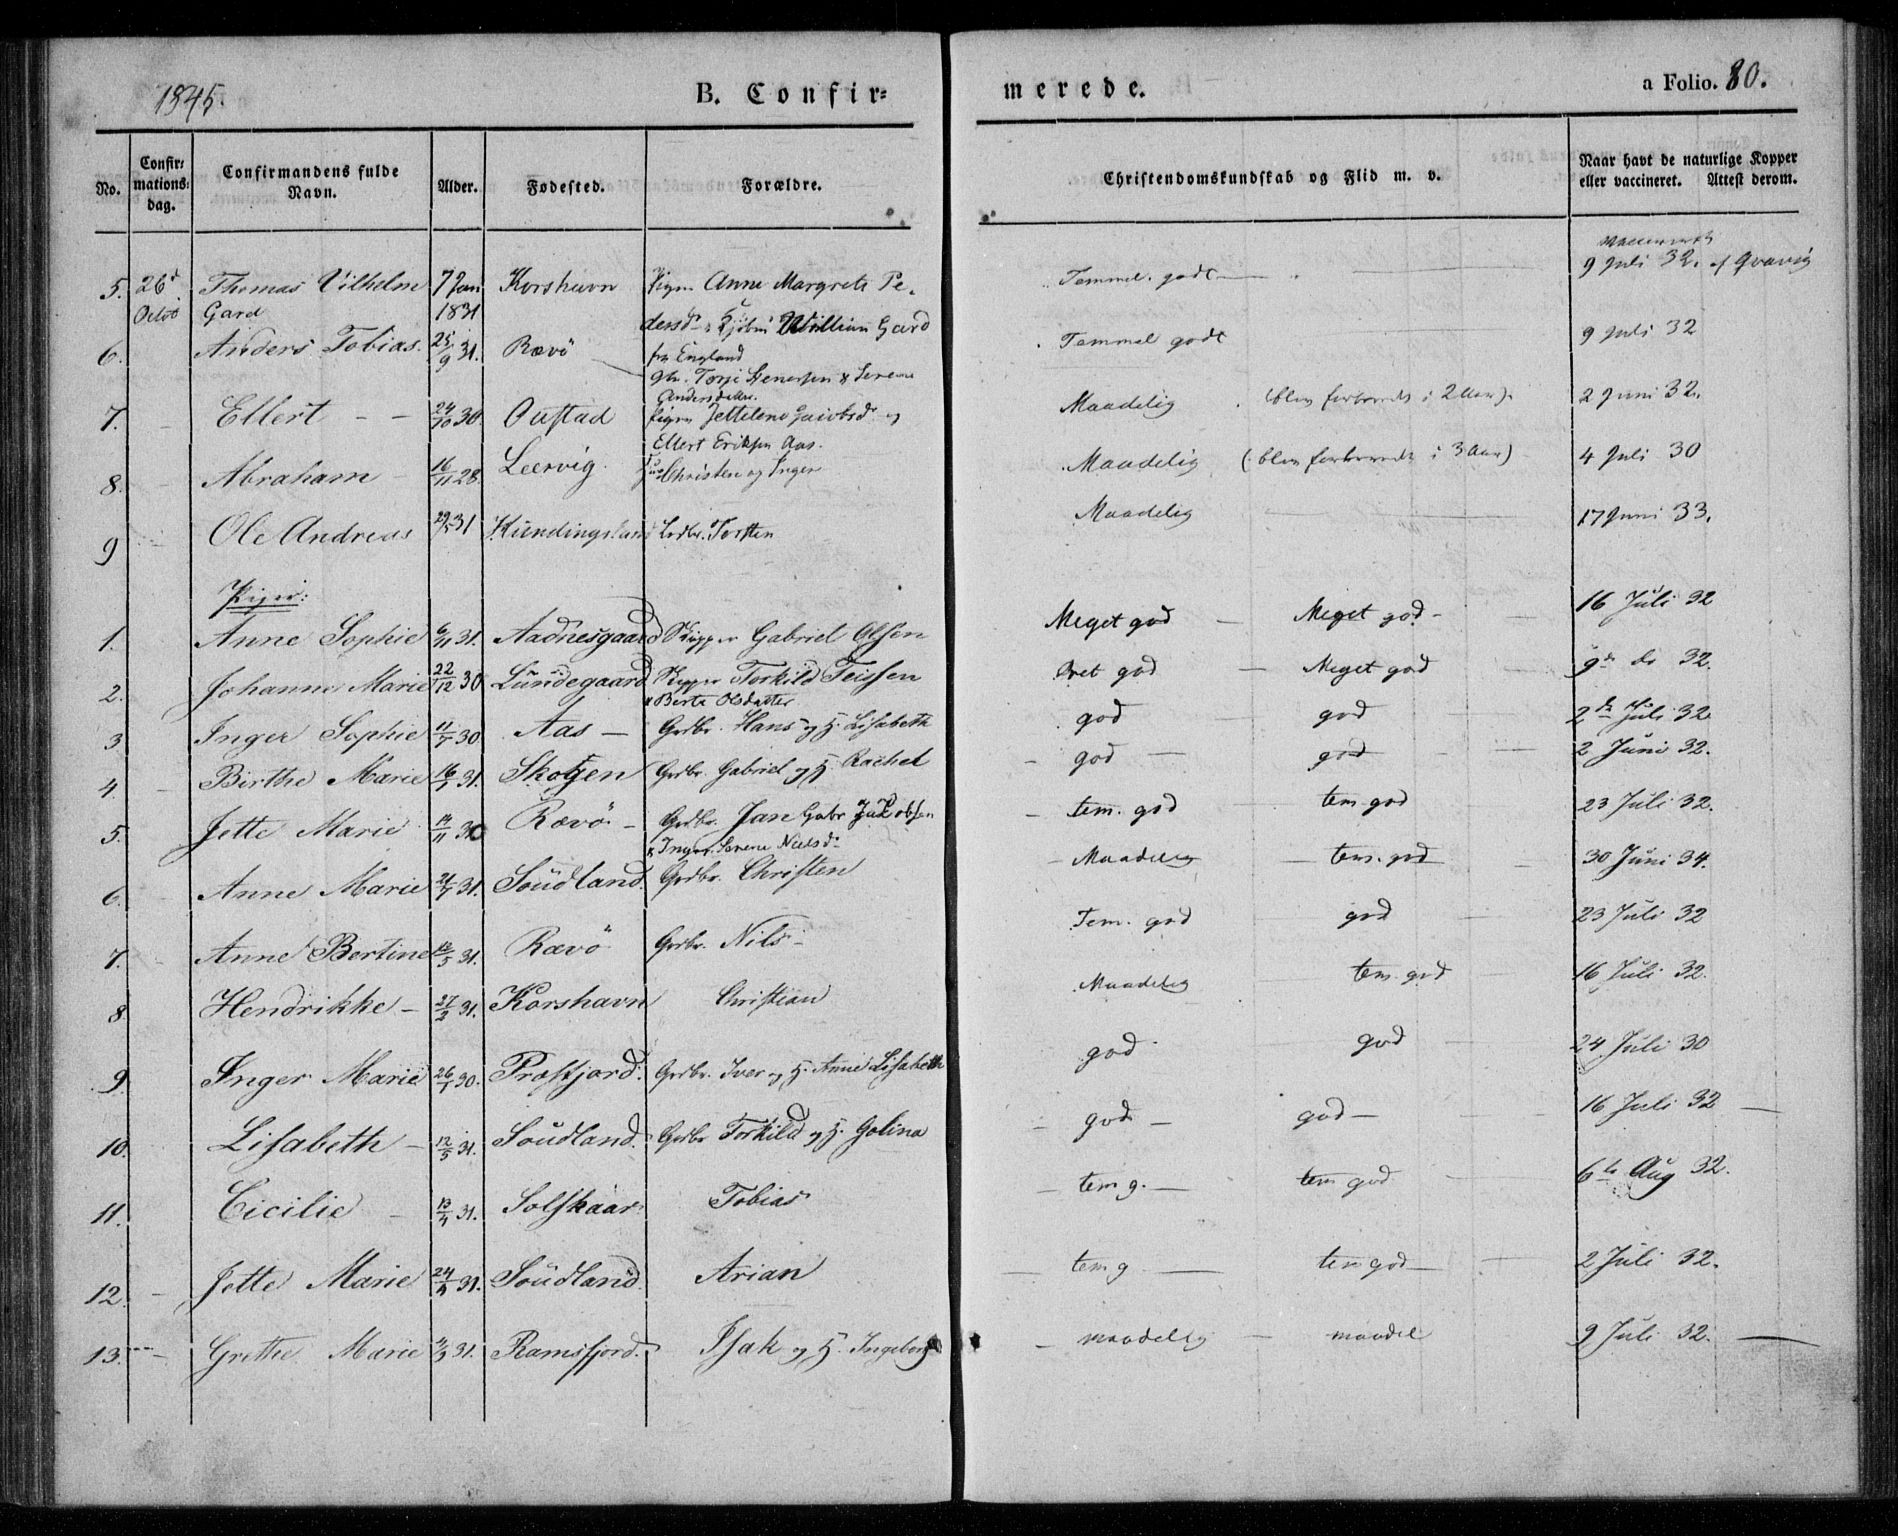 1845.
B. Confirmerede.
a Folio. 80.
No. Confirmations-dag. Confirmandens fulde Navn. Alder. Fødested. Forældre. Christendomskundskab og Flid m. v. Naar havt de naturlige Kopper eller vaccineret. Attest derom.
5. 26d Octob Thomas Vilhelm Gard 7 Jan 1831 Korshavn Pigen Anne Margrete Pedersd William Gard fra England Temmel. godt 9 Juli 32.
6. Anders Tobias. 25/9 31. Rævö Torje Stenersen & Serene Andersdatter. Temmel godt 9 Juli 32
7. Ellert 24/10 30. Oustad Pigen Jettelene Jacobsd og Ellert Eriksen Aas. Maadelig (blev forberedt i 2 Aar). 2 Juni 32.
8. Abraham 16/11 28. Leervig. Christen og Inger Maadelig (blev forberedt i 3 Aar) 4 Juli 30
9 Ole Andreas 31 Kundingsland Torsten Maadelig 17 Juni 33.
Piger:
1. Anne Sophie 6/11 31. Aadnesgaard Skipper Gabriel Olsen Meget god Meget god 16 Juli 32
2. Johanne Marie 22/12 30 Lundegaard Skipper Torkild Teissen & Berte Olsdatter god Meget god 9de do 32.
3 Inger Sophie 11/7 30 Aas Grdbr. Hans og H. Lisabeth god god 2de Juli 32
4. Birthe Marie 16/1 31. Skogen Grdbr. Gabriel og H. Rachel god god 2 Juni 32.
5. Jette Marie 14/11 30 Rævö Grdbr. Jan Gabr Jakobsen & Inger Serene Nielsd tem. god tem god 23 Juli 32.
6. Anne Marie 21/7 31. Soudland. Grdbr. Christen Maadelig tem. god 30 Juni 34.
7. Anne Bertine 12/5 31. Rævö Grdbr. Nils Tem. god god 23 Juli 32
8. Hendrikke 27/2 31. Korshavn Christian Maadelig tem. god 16 Juli 32.
9. Inger Marie 26/1 30. Prestfjord. Grdbr. Iver og H. Anne Lisabeth god god 24 Juli 30
10. Lisabeth 12/5 31. Soudland. Grdbr Torkild og H. Golina god god 16 Juli 32
11. Cicilie 13/4 31. Solskaar Tobias tem g. tem god 6te Aug 32.
12. Jette Marie 24/4 31. Soudland. Arian tem g tem god 2 Juli 32.
13. Grethe Marie 31. Ramsfjord. Isak og H. Ingeborg maadelig maadel 9 Juli 32.